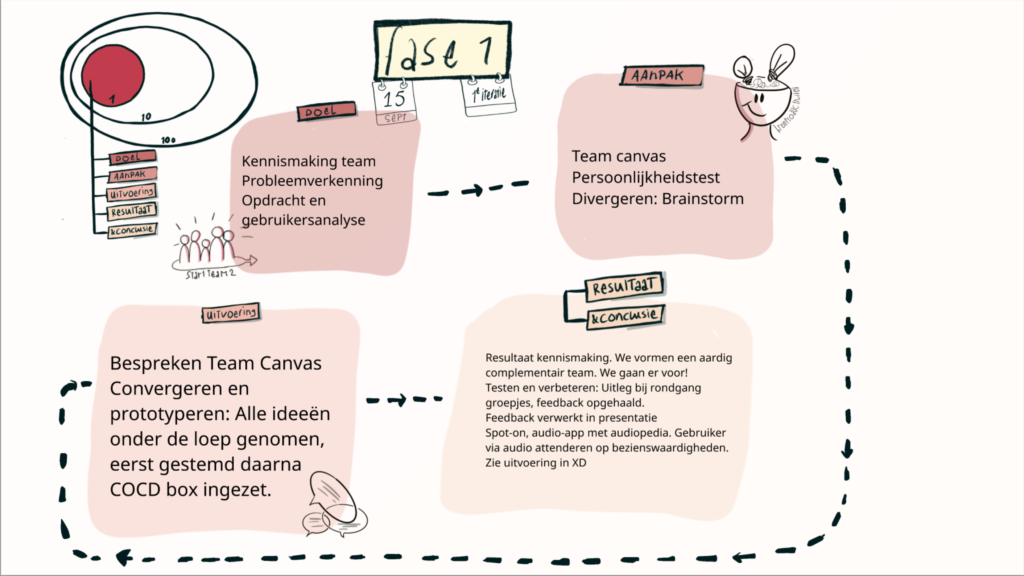 fase 1
15
SEPT
1e iteratie
1
10
100
DOEL
AANPAK
UITVOERING
RESULTAAT
&CONCLUSIE
DOEL
Kennismaking team
Probleemverkenning
Opdracht en
gebruikersanalyse
START TEAM 2
AANPAK
Team canvas
Persoonlijkheidstest
Divergeren: Brainstorm
UITVOERING
Bespreken Team Canvas
Convergeren en
prototyperen: Alle ideeën
onder de loep genomen,
eerst gestemd daarna
COCD box ingezet.
RESULTAAT
&CONCLUSIE
Resultaat kennismaking. We vormen een aardig
complementair team. We gaan er voor!
Testen en verbeteren: Uitleg bij rondgang
groepjes, feedback opgehaald.
Feedback verwerkt in presentatie
Spot-on, audio-app met audiopedia. Gebruiker
via audio attenderen op bezienswaardigheden.
Zie uitvoering in XD